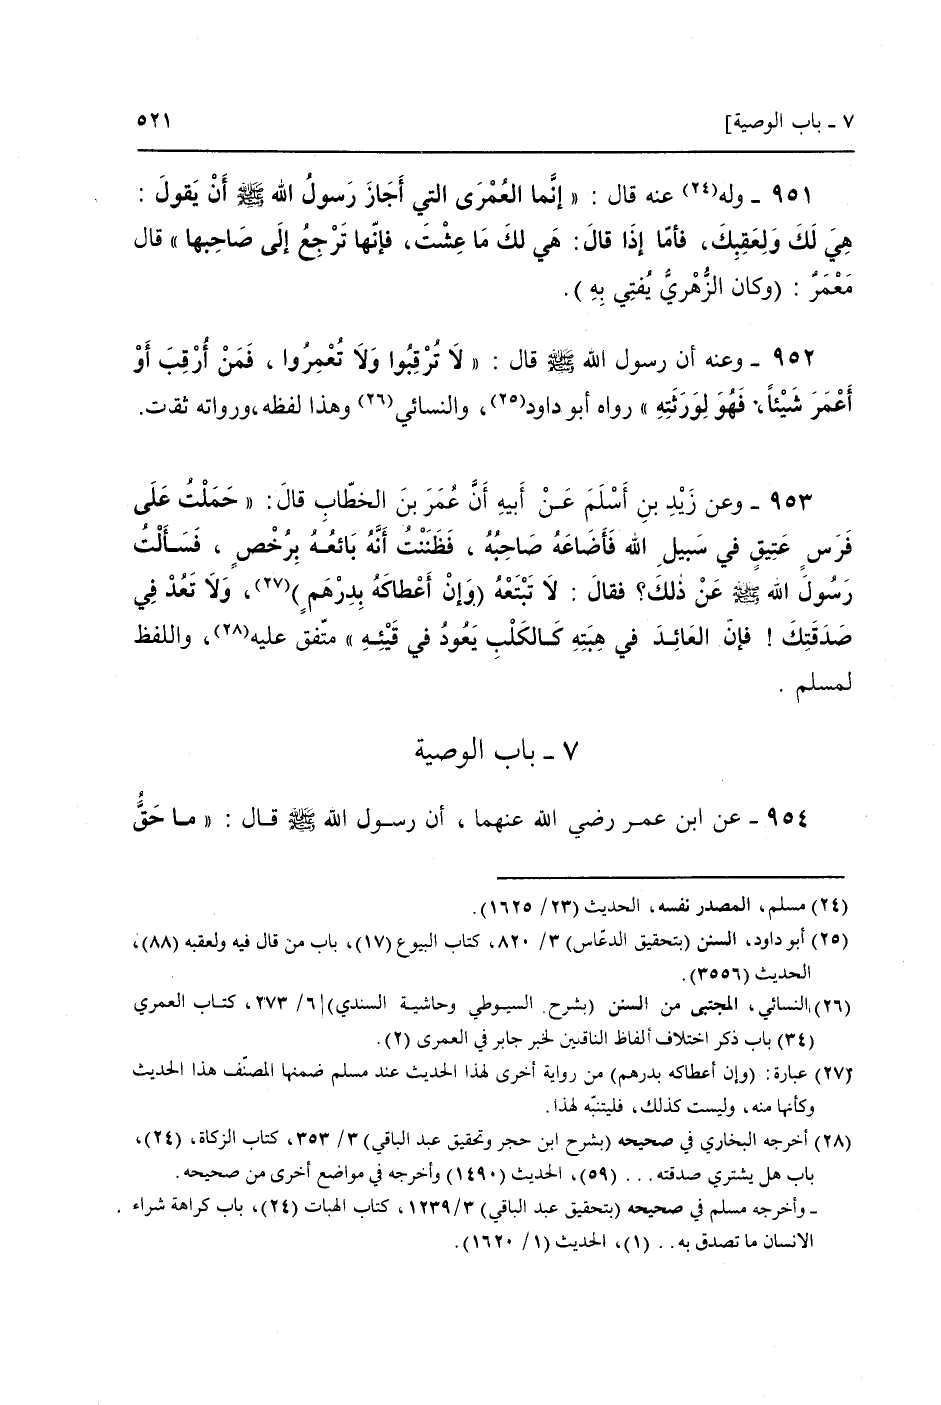 ٧ ـ باب الوصية] ٥٢١
٩٥١ ـ وله(٢٤) عنه قال : « إنَّما العُمْرَى التي أَجَازَ رَسولُ الله ﷺ أَنْ يَقولَ :
هِيَ لَكَ وَلِعَقِبِكَ، فأمّا إذَا قالَ: هَي لكَ مَا عِشْتَ، فإنّها تَرْجِعُ إلَى صَاحِبها » قال
مَعْمَرٌ : (وكان الزُّهْريُّ يُفتِي بِهِ ).
٩٥٢ ـ وعنه أن رسول الله ﷺ قال : « لَا تُرْقِبُوا وَلَا تُعْمِرُوا ، فَمَنْ أُرْقِبَ أَوْ
أَعْمَرَ شَيْئاً، فَهُوَ لِوَرَثَتِهِ » رواه أبو داود(٢٥)، والنسائي(٢٦) وهذا لفظه،ورواته ثقت.
٩٥٣ ـ وعن زَيْدِ بنِ أَسْلَمَ عَـنْ أبيهِ أنَّ عُمَرَ بنَ الخطّابِ قالَ: « حَمَلْتُ عَلَى
فَرَسٍ عَتِيقٍ في سَبيلِ الله فَأَضَاعَهُ صَاحِبُهُ ، فَظَنَنْتُ أنَّهُ بَائعُـهُ بِرُخْصٍ ، فَسَـأَلْتُ
رَسُولَ الله ﷺ عَنْ ذٰلكَ؟ فقالَ : لَا تَبْتَعْهُ (وَإِنْ أَعْطاكَهُ بِدِرْهَمٍ )(٢٧)، وَلَا تَعُدْ فِي
صَدَقَتِكَ ! فإنَّ العَائِـدَ في هِبَتِهِ كَـالكَلْبِ يَعُودُ في قَيْئِـهِ » متّفق عليه(٢٨)، واللفظ
لمسلم .
٧ ـ باب الوصية
٩٥٤ ـ عن ابن عمـر رضي الله عنهما ، أن رسـول الله ﷺ قـال : « مـا حَقُّ
(٢٤) مسلم، المصدر نفسه، الحديث (٢٣/ ١٦٢٥).
(٢٥) أبو داود، السنن (بتحقيق الدعّاس) ٣/ ٨٢٠، كتاب البيوع (١٧)، باب من قال فيه ولعقبه (٨٨)،
الحديث (٣٥٥٦).
(٢٦) النسائي، المجتبى من السنن (بشرح السيوطي وحاشية السندي) ٦/ ٢٧٣، كتـاب العمري
(٣٤) باب ذكر اختلاف ألفاظ الناقلين لخبر جابر في العمرى (٢).
(٢٧) عبارة: (وإن أعطاكه بدرهم) من رواية أخرى لهذا الحديث عند مسلم ضمنها المصنّف هذا الحديث
وكأنها منه، وليست كذلك، فليتنبّه لهذا.
(٢٨) أخرجه البخاري في صحيحه (بشرح ابن حجر وتحقيق عبد الباقي) ٣/ ٣٥٣، كتاب الزكاة، (٢٤)،
باب هل يشتري صدقته... (٥٩)، الحديث (١٤٩٠) وأخرجه في مواضع أخرى من صحيحه.
ـ وأخرجه مسلم في صحيحه (بتحقيق عبد الباقي) ٣/ ١٢٣٩، كتاب الهبات (٢٤)، باب كراهة شراء
الانسان ما تصدق به.. (١)، الحديث (١/ ١٦٢٠).